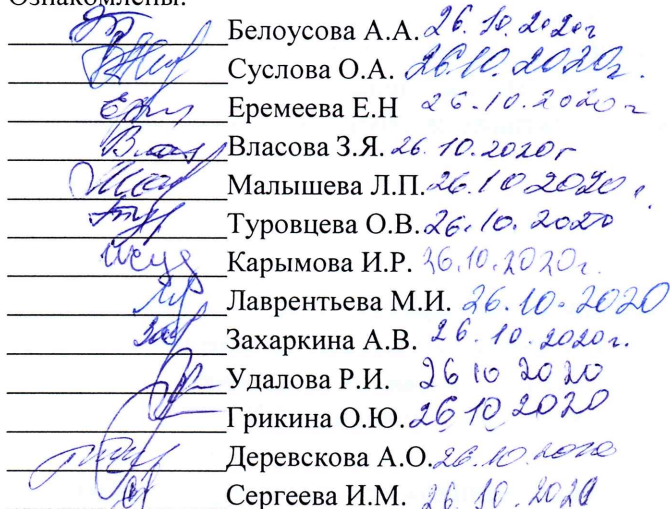 Ознакомлены:
Белоусова А.А. 26.10.2020г
Суслова О.А. 26.10.2020г.
Еремеева Е.Н 26.10.2020г
Власова З.Я. 26.10.2020г
Малышева Л.П. 26.10.2020г
Туровцева О.В. 26.10.2020
Карымова И.Р. 26.10.2020г.
Лаврентьева М.И. 26.10.2020
Захаркина А.В. 26.10.2020г.
Удалова Р.И. 26 10 2020
Грикина О.Ю. 26 10 2020
Деревскова А.О. 26.10.2020
Сергеева И.М. 26.10.2020